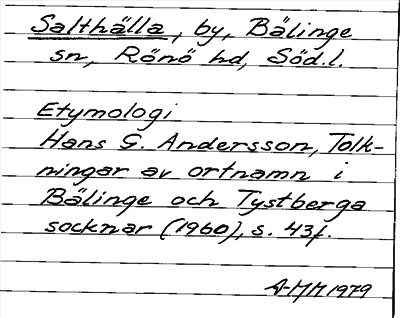 Salthälla, by, Bälinge
sn, Rönö hd, Söd.l.
Etymologi
Hans G. Andersson, Tolk-
ningar av ortnamn i
Bälinge och Tystberga
socknar (1960), s. 43f.
A-MM 1979